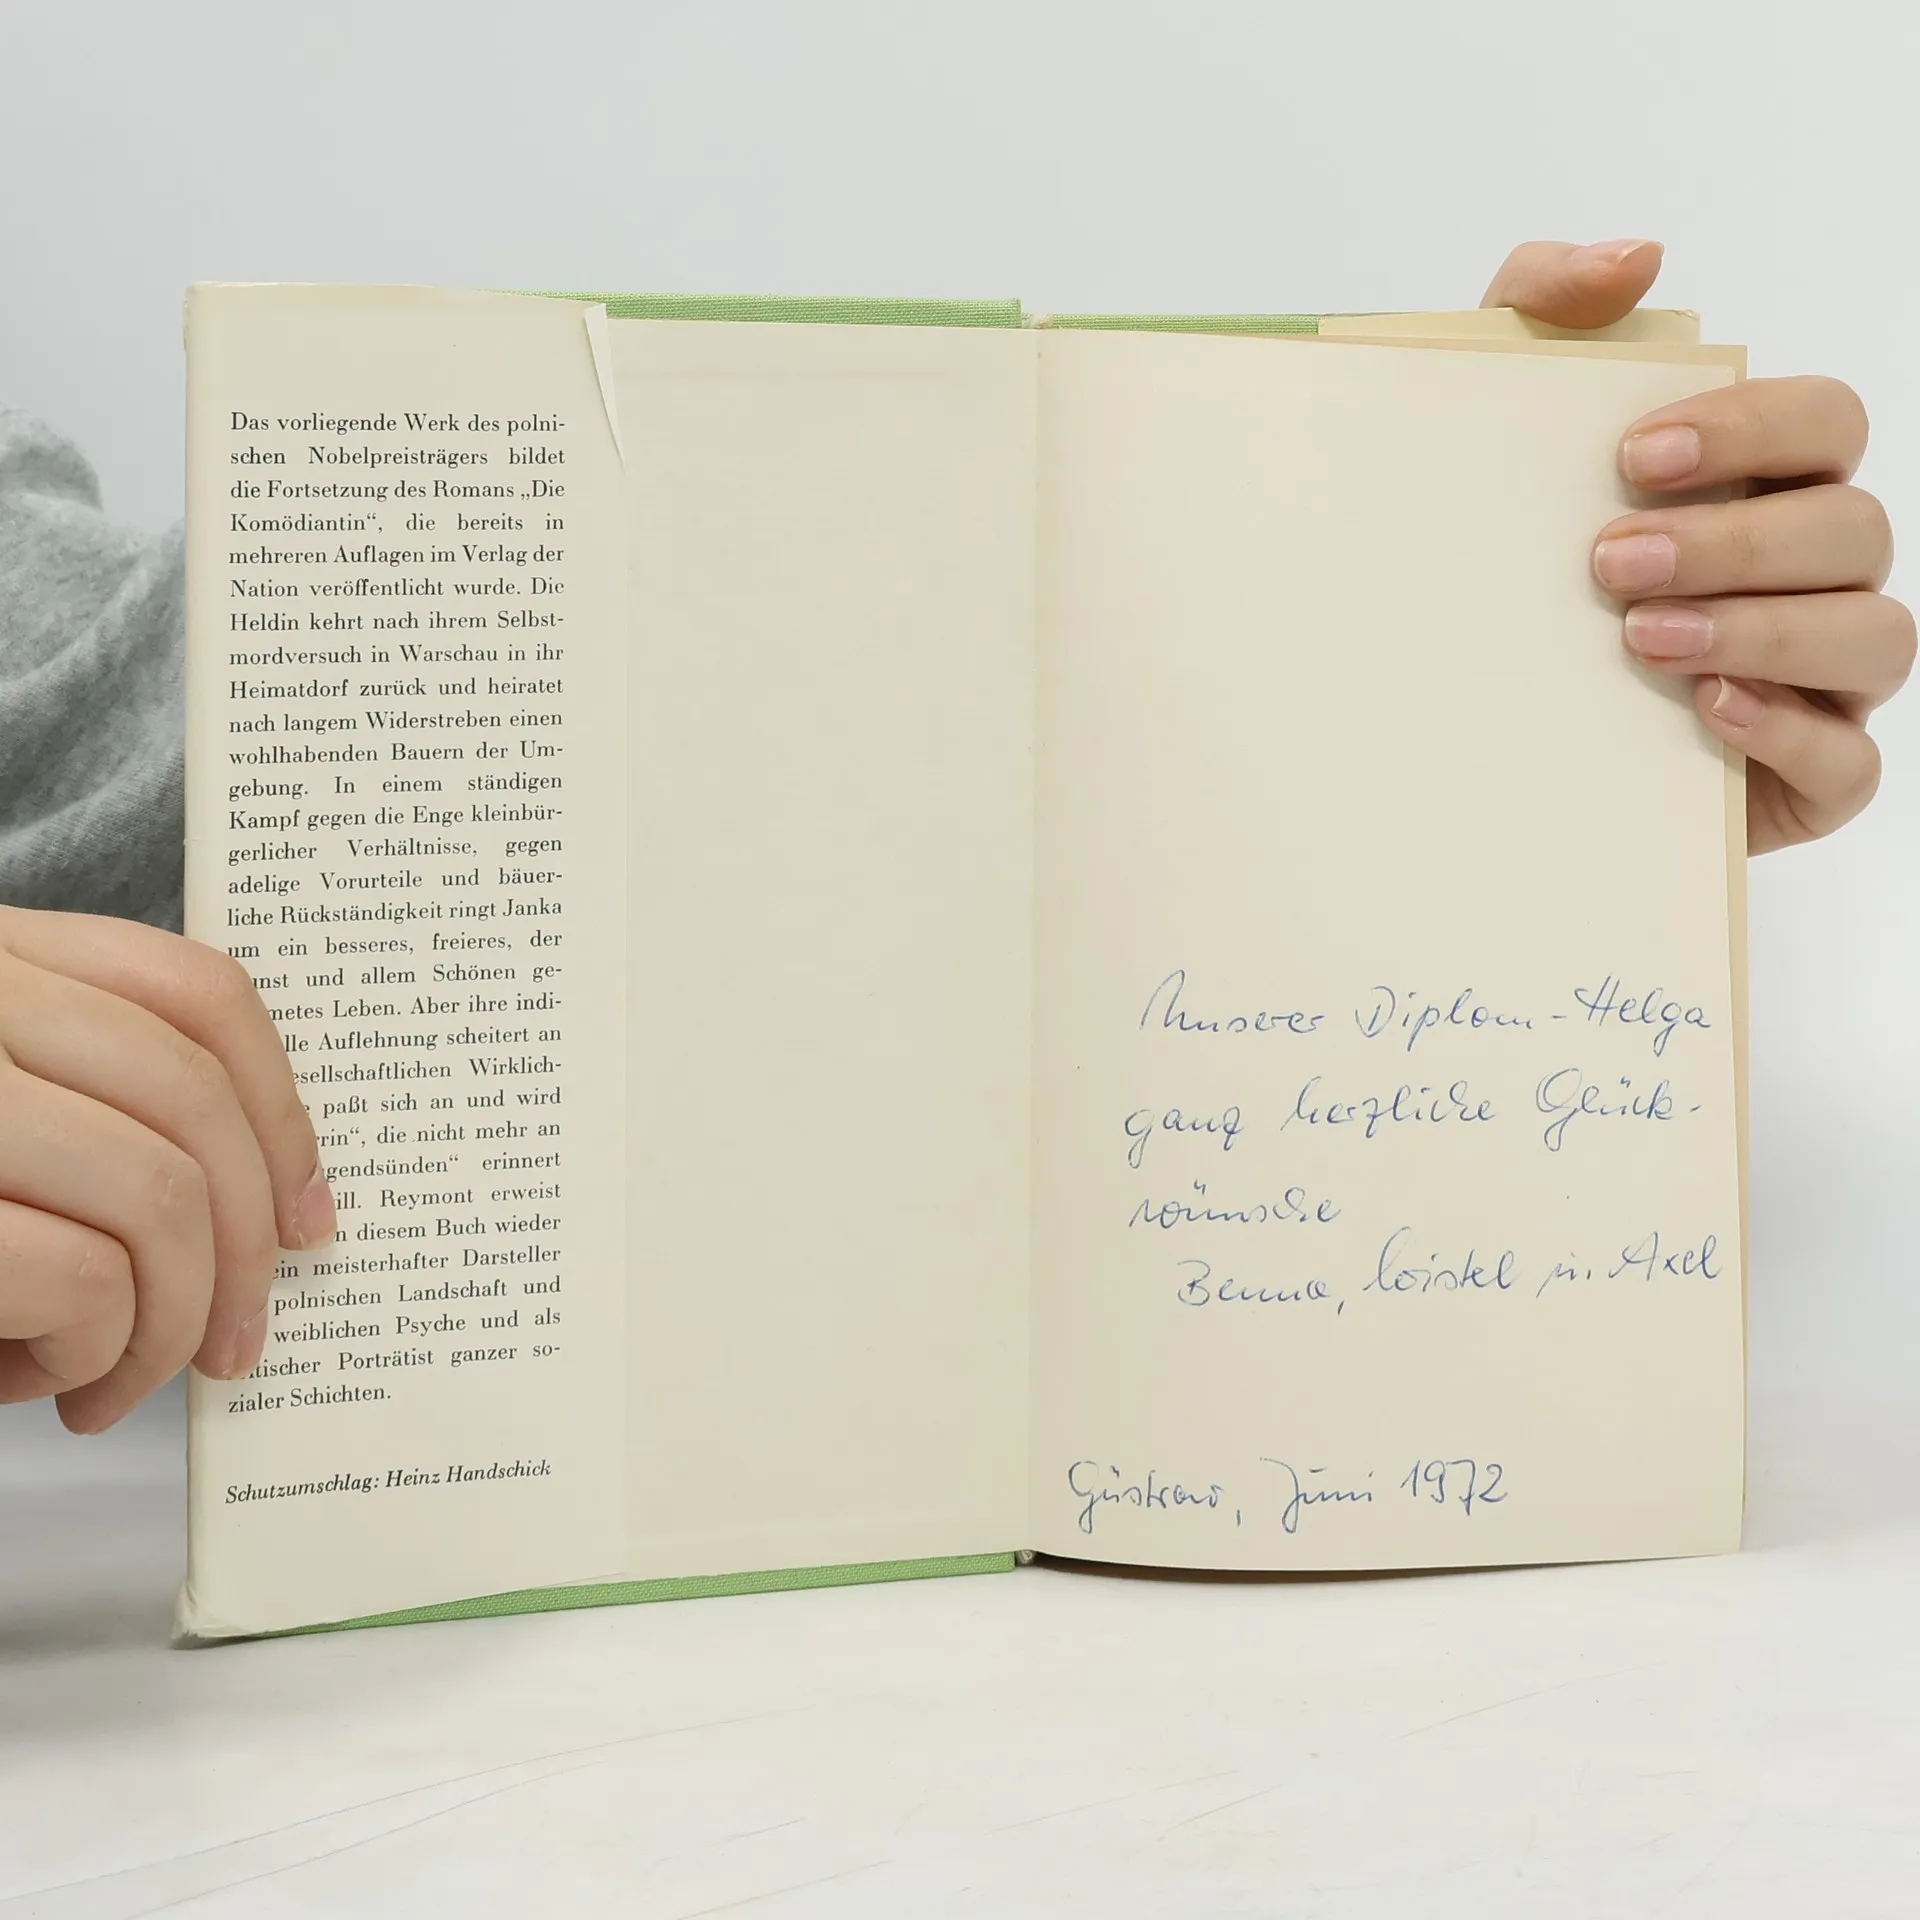 Das vorliegende Werk des polni-
schen Nobelpreisträgers bildet
die Fortsetzung des Romans „Die
Komödiantin“, die bereits in
mehreren Auflagen im Verlag der
Nation veröffentlicht wurde. Die
Heldin kehrt nach ihrem Selbst-
mordversuch in Warschau in ihr
Heimatdorf zurück und heiratet
nach langem Widerstreben einen
wohlhabenden Bauern der Um-
gebung. In einem ständigen
Kampf gegen die Enge kleinbür-
gerlicher Verhältnisse, gegen
adelige Vorurteile und bäuer-
liche Rückständigkeit ringt Janka
um ein besseres, freieres, der
und allem Schönen ge-
Leben. Aber ihre indi-
Auflehnung scheitert an
Wirklich-
paßt sich an und wird
die nicht mehr an
erinnert
Reymont erweist
diesem Buch wieder
ein meisterhafter Darsteller
polnischen Landschaft und
weiblichen Psyche und als
Porträtist ganzer so-
zialer Schichten.
Schutzumschlag: Heinz Handschick
Unserer Diplom-Helga
ganz herzliche Glück-
wünsche
Benno, u. Axel
Güstrow, Juni 1972